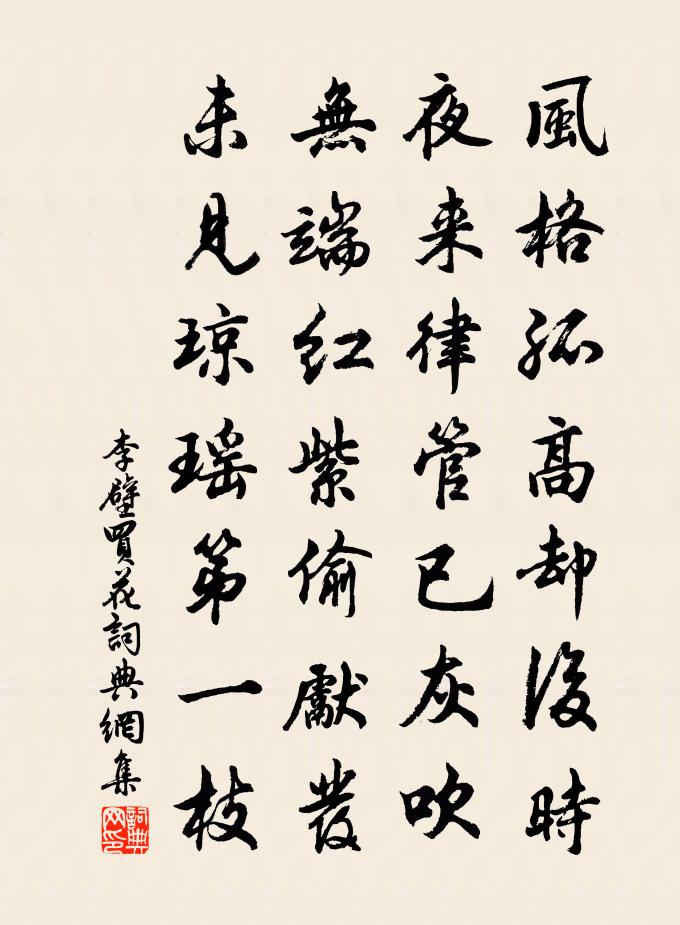 風格孤高却後時
夜来律管已灰吹
無端紅紫偷獻發
未見琼瑶第一枝
李壁買花詞典網集
詞典网印